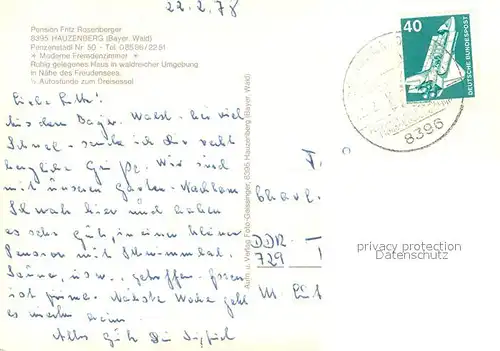 22.2.78
Pension Fritz Rosenberger
8395 HAUZENBERG (Bayer. Wald)
Penzenstadl Nr. 50 - Tel. 08586/2251
* Moderne Fremdenzimmer *
Ruhig gelegenes Haus in waldreicher Umgebung
in Nähe des Freudensees.
½ Autostunde zum Dreisessel
40
DEUTSCHE BUNDESPOST
8396
Liebe
Aus dem Bayer. Wald bei viel
Schnee sende ich dir recht
herzliche Grüße. Wir sind
mit unseren Garten-Nachbarn
hier und haben
es sehr gut, in einer kleinen
Pension mit Schwimmbad,
Sauna, usw. getroffen. Essen
ist prima. Nächste Woche geht
es wieder heim.
Alles Gute Dein Sigfried
Aufn. u. Verlag Foto-Geisenger, 8395 Hauzenberg (Bayer. Wald)
DDR
729
privacy protection
Datenschutz